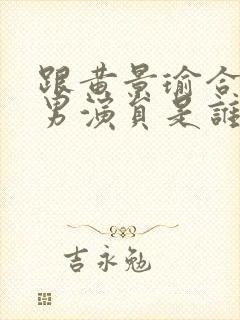 跟黄景瑜合
男演員是誰
吉永勉